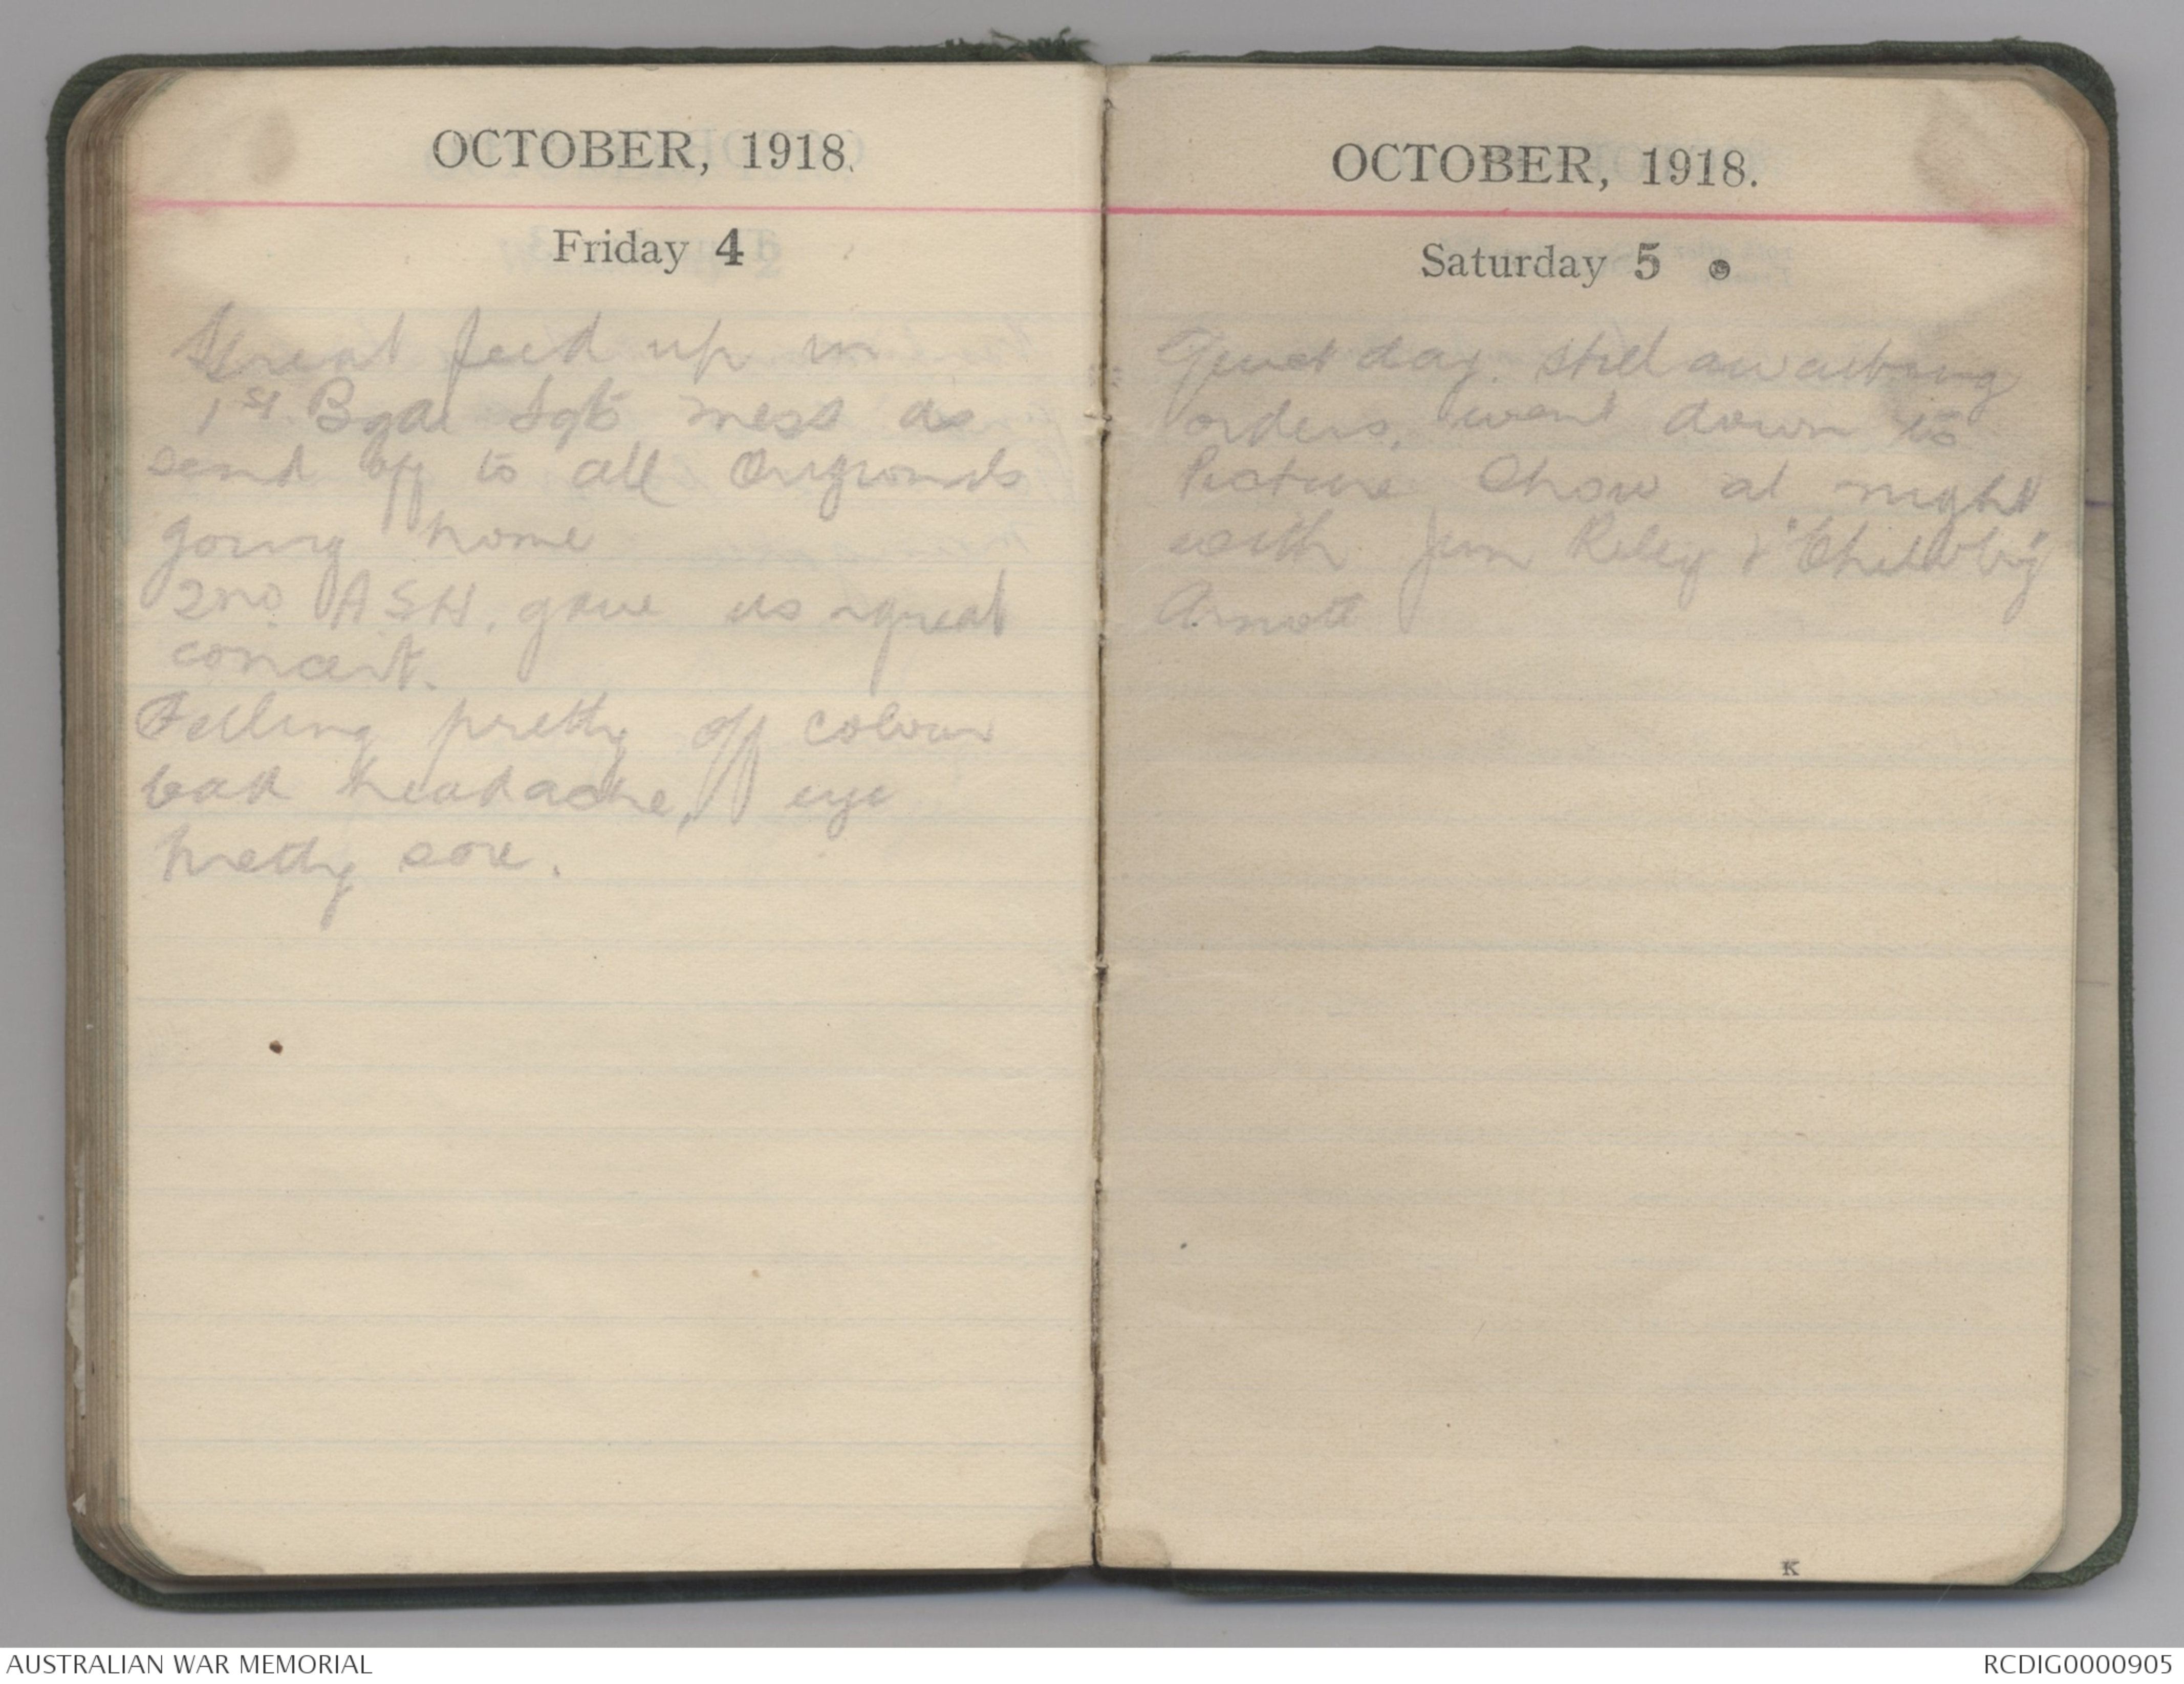 OCTOBER, 1918.
Friday 4
Great feed up in
1st Bgde Sgts mess as
send off to all Originals
going home
2nd ASH. gave us a great
concert.
Felling pretty off colour
bad headache, eye
pretty sore.
OCTOBER, 1918.
Saturday 5
Quiet day. still awaiting
orders, went down to
Picture Show at night
with Jim Riley & "Chibby"
Arnott
K
AUSTRALIAN WAR MEMORIAL
RCDIG0000905